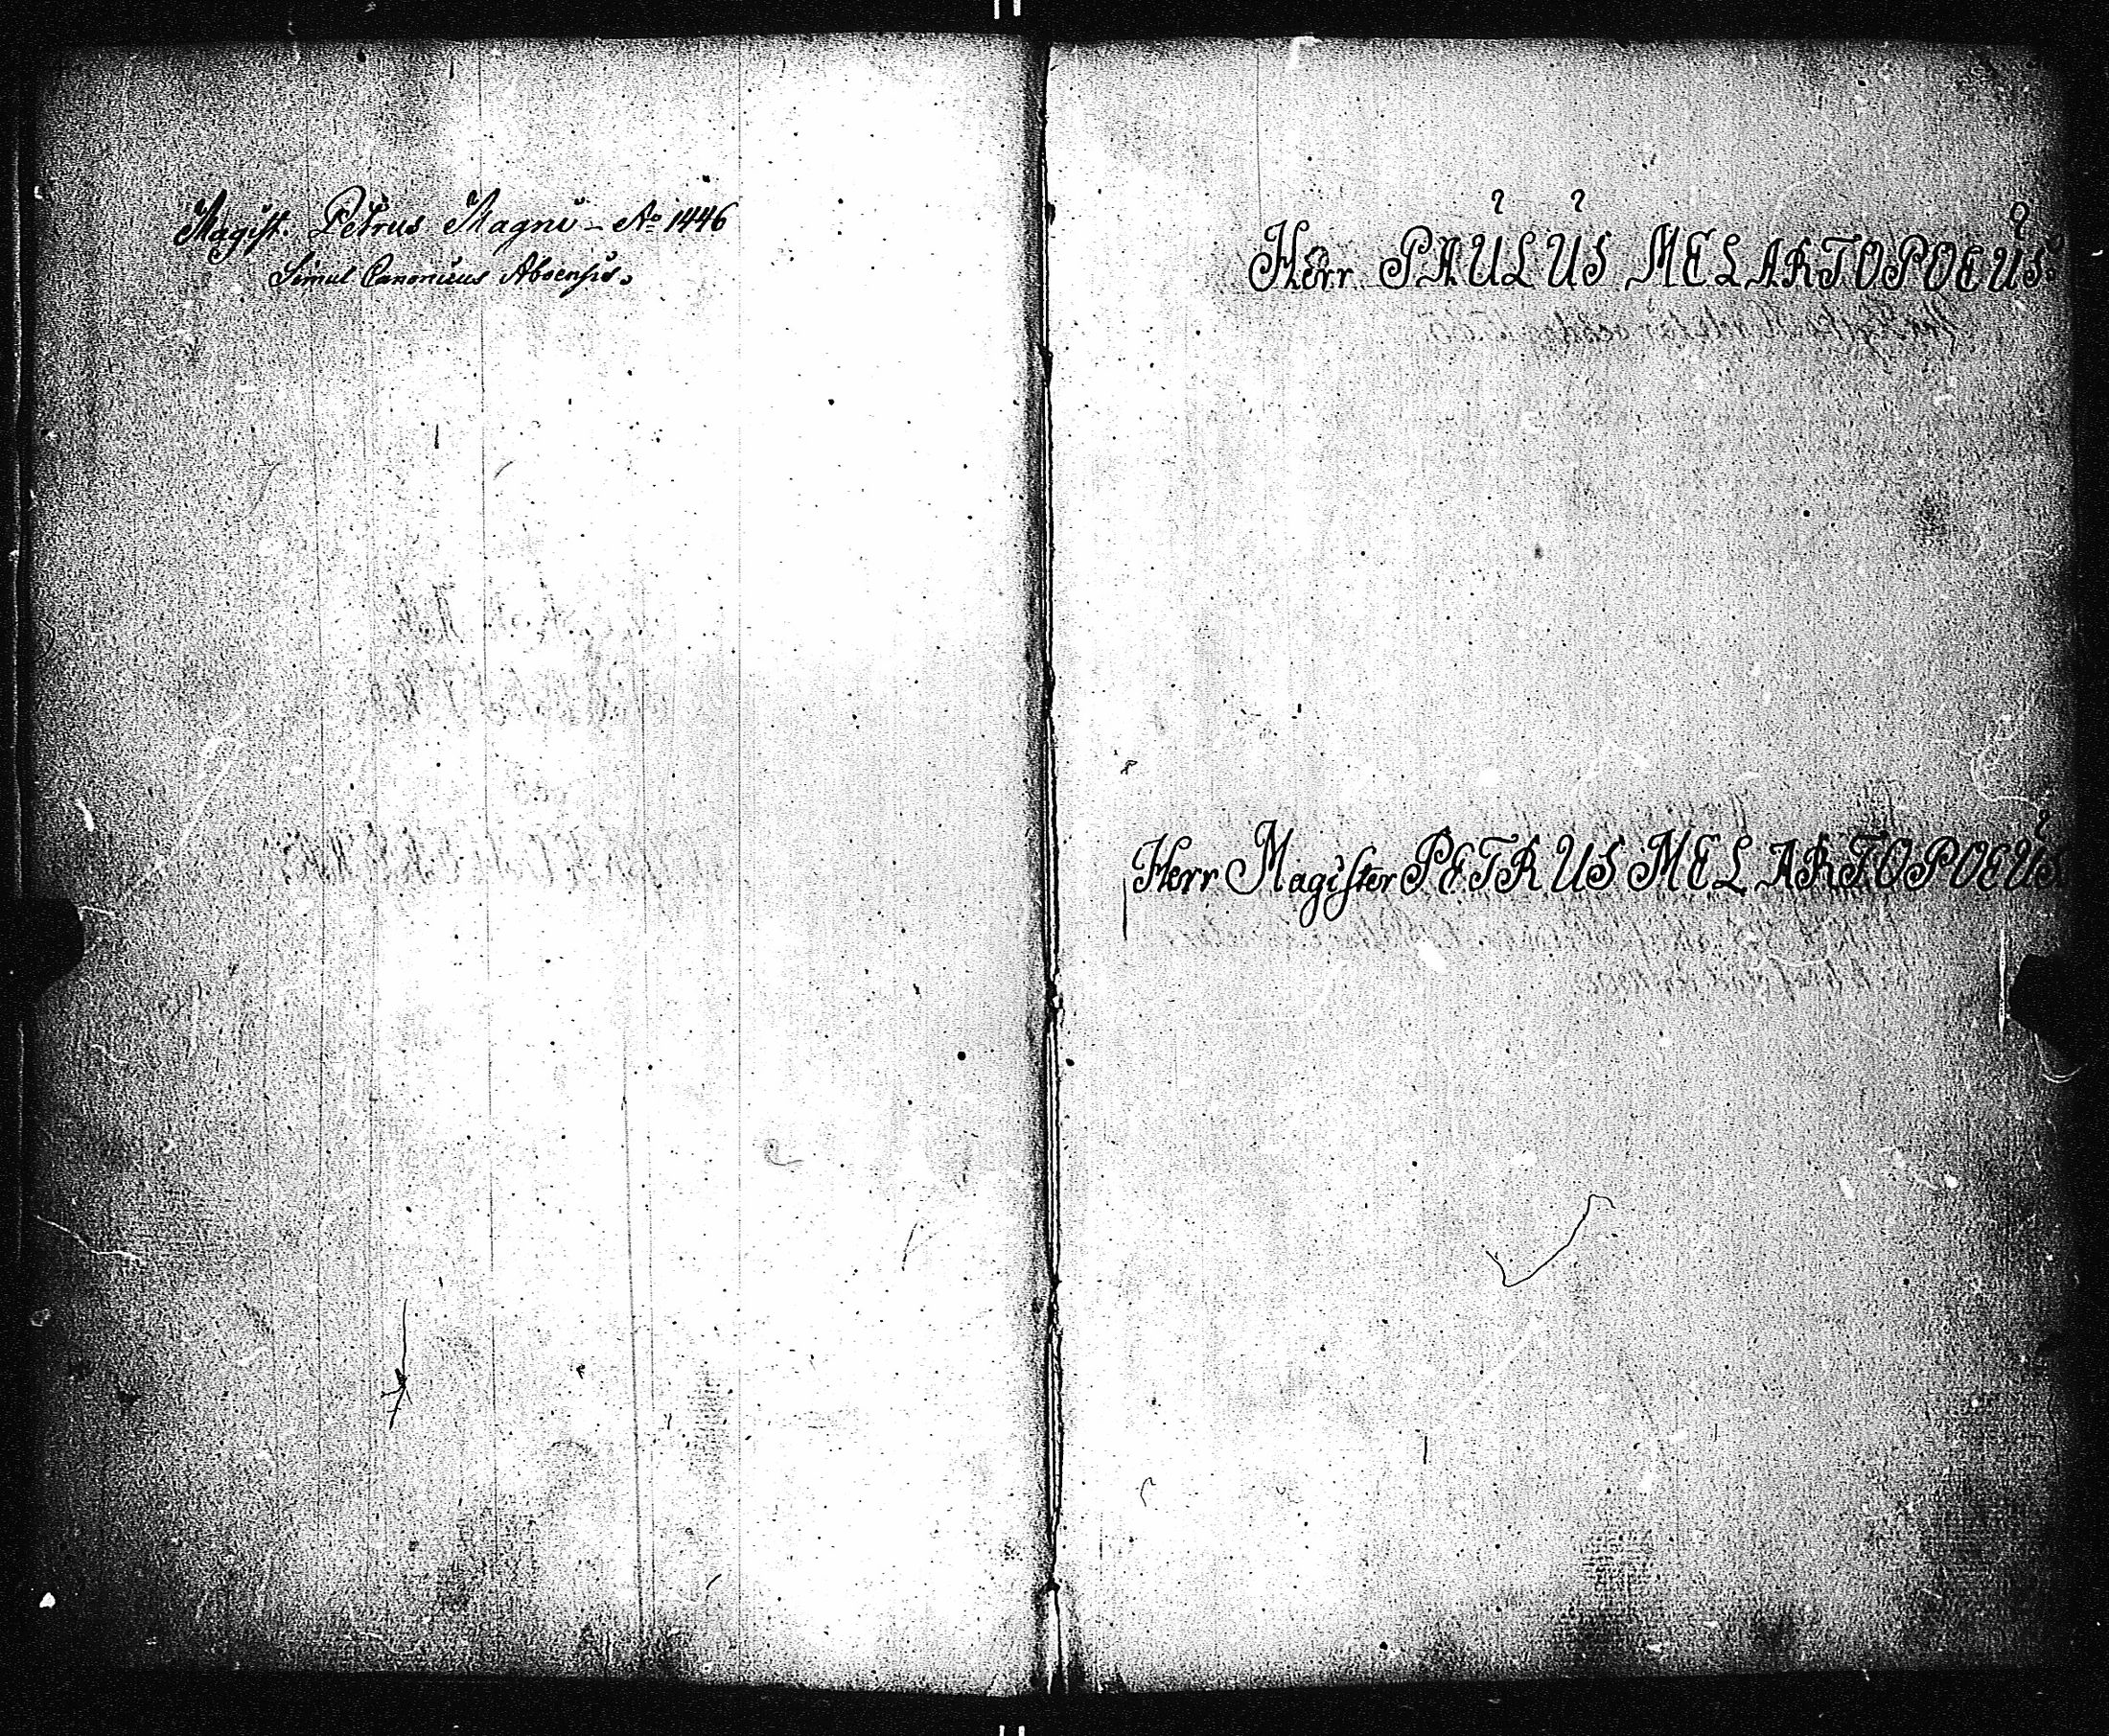 Magist. Petrus Magni – Ao 1446
Simul Canonicus Aboensis.
Herr PAULUS MELARTOPOEUS.
Herr Magister PETRUS MELARTOPOEUS